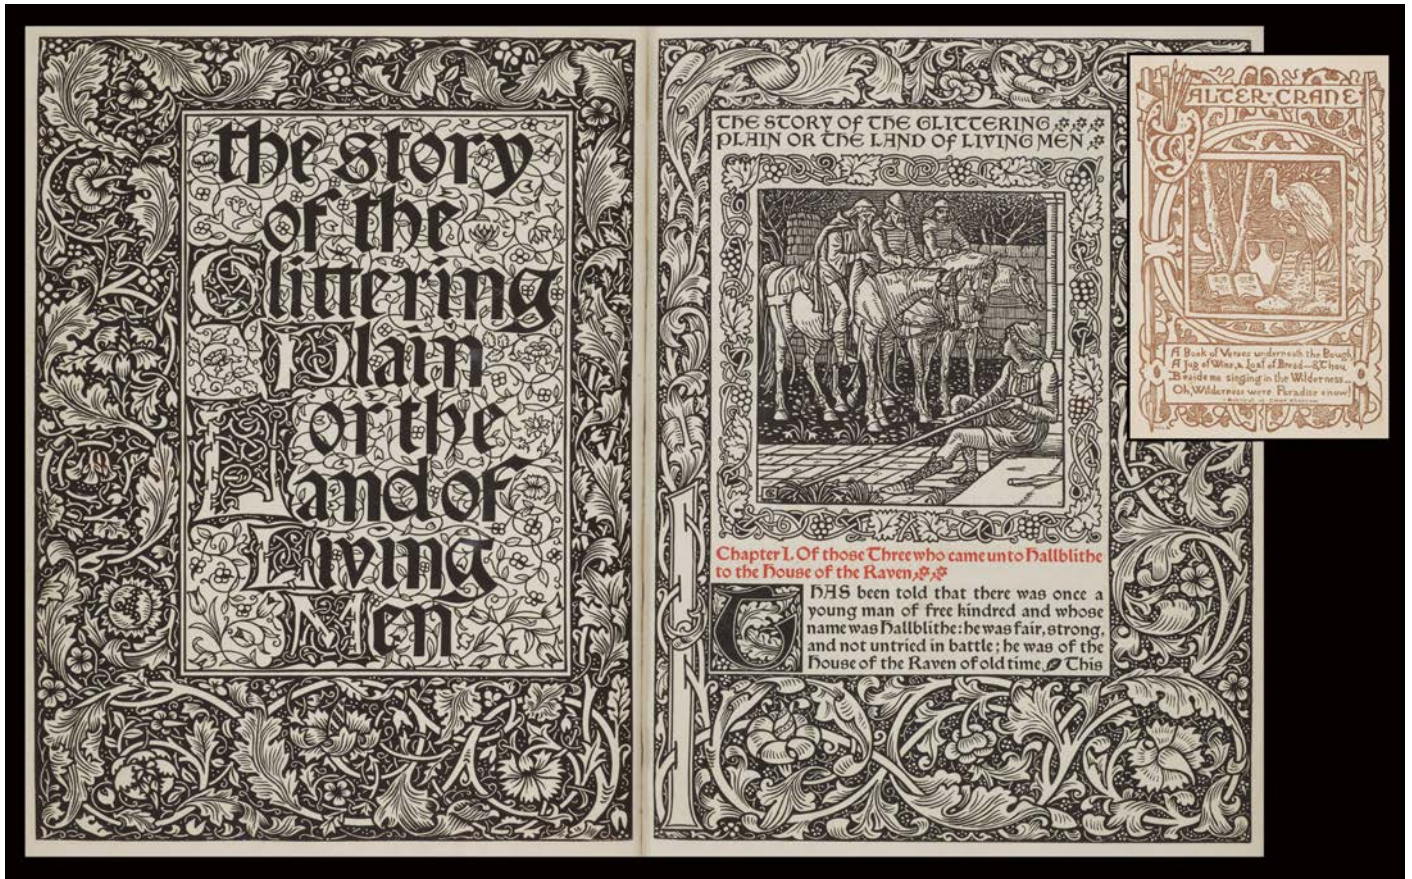 the story
of the
Glittering
Plain
or the
Land of
Living
Men
THE STORY OF THE GLITTERING
PLAIN OR THE LAND OF LIVING MEN
Chapter I. Of those Three who came unto Hallblithe
to the House of the Raven
IT HAS been told that there was once a
young man of free kindred and whose
name was Hallblithe: he was fair, strong,
and not untried in battle; he was of the
House of the Raven of old time. This
WALTER·CRANE
A Book of Verses underneath the Bough,
A Jug of Wine, a Loaf of Bread—& Thou
Beside me singing in the Wilderness—
Oh, Wilderness were Paradise enow!